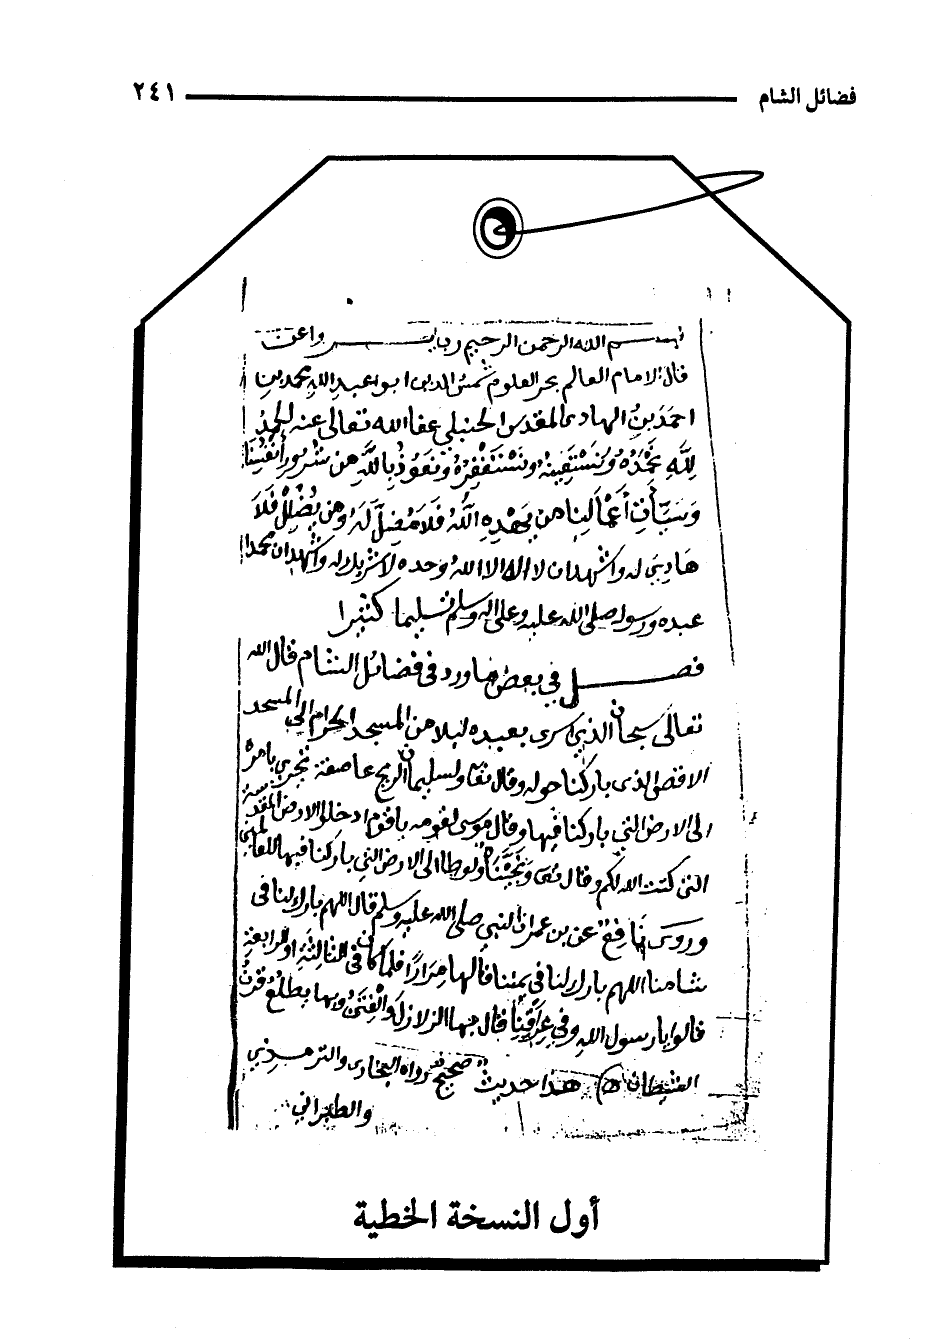 فضائل الشام ٢٤١
بسم الله الرحمن الرحيم رب يسر واعن
قال الامام العالم بحر العلوم شمس الدين ابو عبد الله محمد بن
احمد بن الهادي المقدسي الحنبلي عفا الله تعالى عنه الحمد
لله نحمده ونستعينه ونستغفره ونعوذ بالله من شرور أنفسنا
وسيأت أعمالنا من يهده الله فلا مضل له ومن يضلل فلا
هادي له واشهد ان لا اله الا الله وحده لا شريك له واشهد ان محمدا
عبده ورسوله صلى الله عليه وعلى اله وسلم تسليما كثيرا
فصل في بعض ما ورد في فضائل الشام قال الله
تعالى سبحان الذي اسرى بعبده ليلا من المسجد الحرام الى المسجد
الاقصى الذي باركنا حوله وقال تعا ولسليمان الريح عاصفة تجري بامره
الى الارض التي باركنا فيها وقال موسى لقومه يا قوم ادخلوا الارض المقدسة
التي كتب الله لكم وقال تعى ونجيناه ولوطا الى الارض التي باركنا فيها للعالمين
وروى نافع عن بن عمر ان النبي صلى الله عليه وسلم قال اللهم بارك لنا في
شامنا اللهم بارك لنا في يمننا قالها مرارا فلما كان في الثالثة او الرابعة
قالوا يا رسول الله وفي عراقنا قال بها الزلازل والفتن وبها يطلع قرن
الشيطان هذا حديث صحيح رواه البخاري والترمذي
والطبراني
أول النسخة الخطية